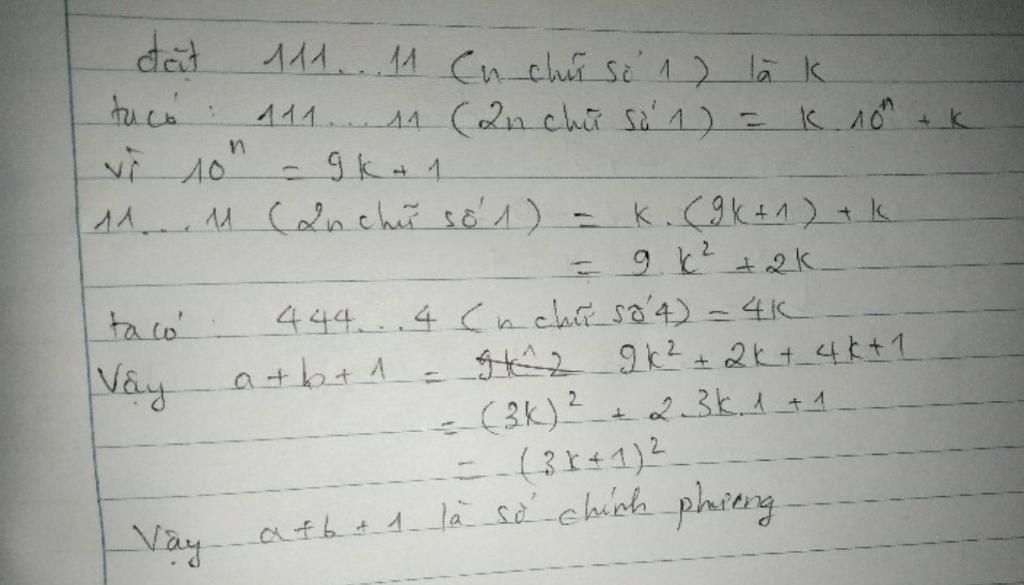 đặt 111...11 (n chữ số 1) là k
ta có : 111....11 (2n chữ số 1) = k.10ⁿ + k
vì 10ⁿ = 9k + 1
11....11 (2n chữ số 1) = k.(9k+1) + k
= 9.k² + 2k
ta có : 444...4 (n chữ số 4) = 4k
Vậy a + b + 1 = 9k² + 2k + 4k + 1
= (3k)² + 2.3k.1 + 1
= (3k+1)²
Vậy a + b + 1 là số chính phương